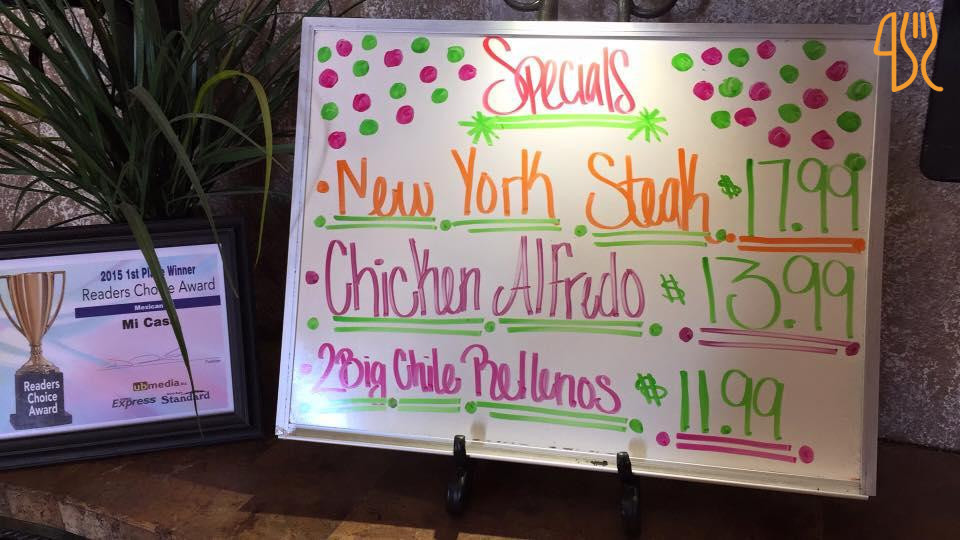 Specials
New York Steak $17.99
Chicken Alfredo $13.99
2 Big Chile Rellenos $11.99
2015 1st Place Winner
Readers Choice Award
Mexican
Mi Cas
ubmedia
Express Standard
Readers
Choice
Award